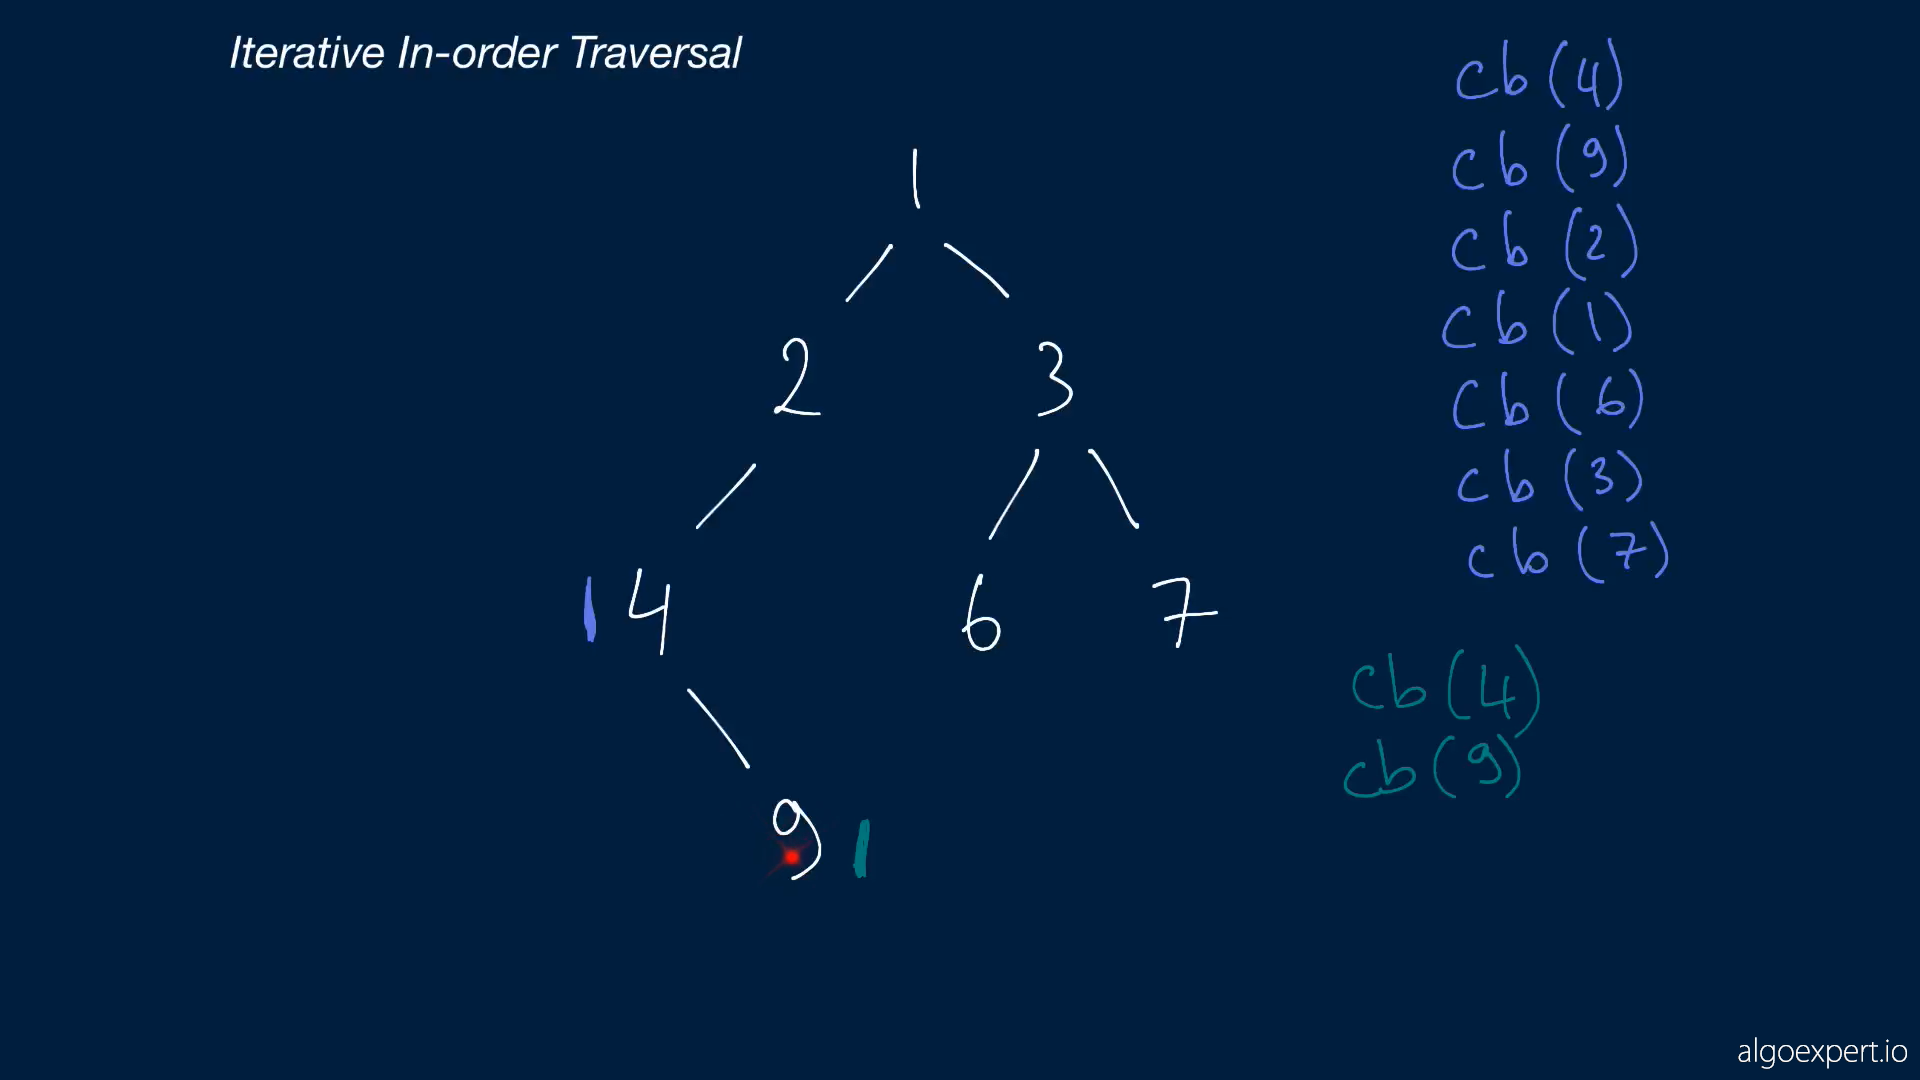 Iterative In-order Traversal
1
2 3
4 6 7
9
cb (4)
cb (9)
cb (2)
cb (1)
cb (6)
cb (3)
cb (7)
cb (4)
cb (9)
algoexpert.io